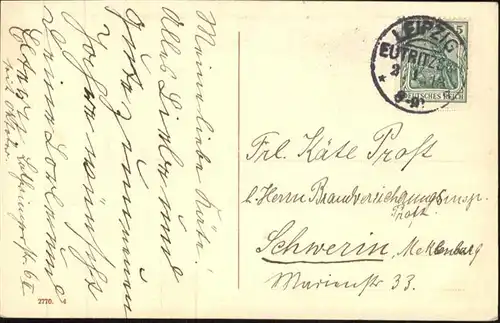 Meine liebe Käte!
Alles Liebe und
Gute zum neuen
Jahre wünscht
Deine
LEIPZIG
EUTRITZSCH
5
DEUTSCHES REICH
Frl. Käte Prost
b. Herrn Brandversichgungsinsp.
Prost.
Schwerin, Mecklenburg
Marienstr 33.
2770. 4